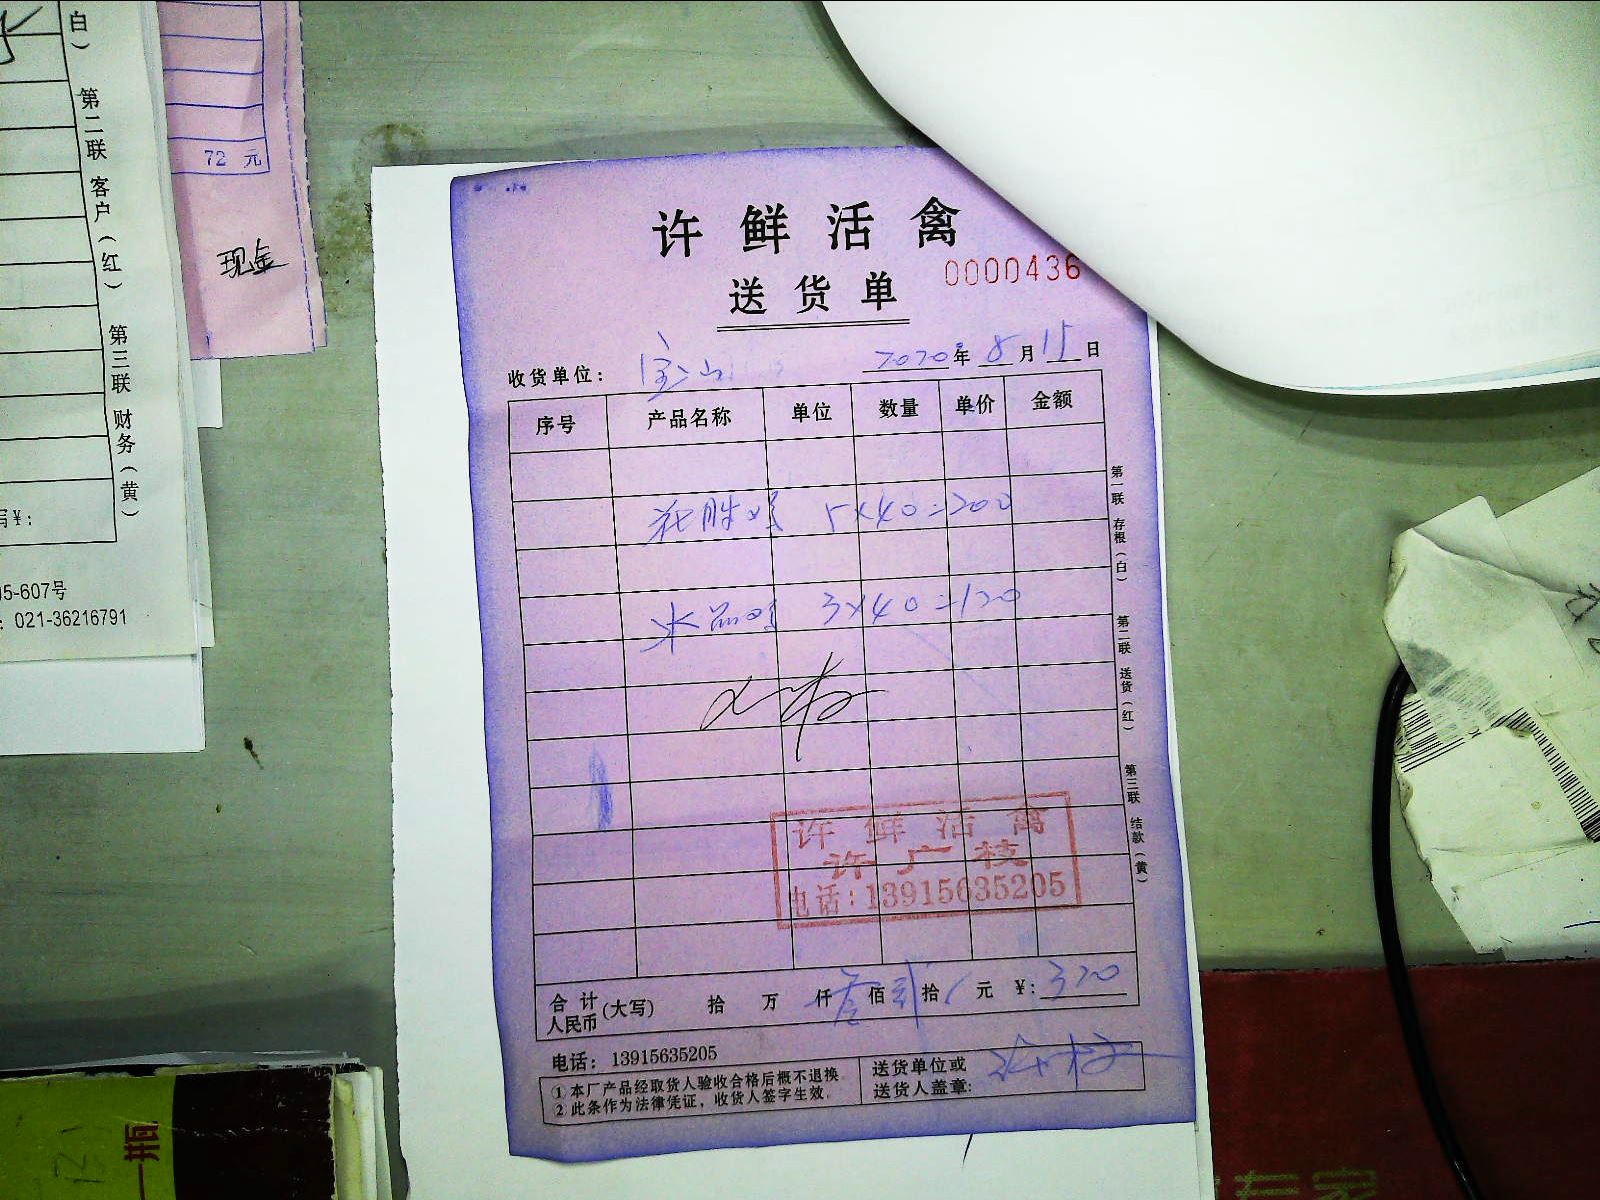 白）
第二联 客户（红）
第三联 财务（黄）
写¥：
05-607号
：021-36216791
72 元
现金
许鲜活禽
送货单
0000436
收货单位： 宝山
2020年 8月 15日
序号 产品名称 单位 数量 单价 金额
5×40=200
3×40=120
第一联 存根（白）
第二联 送货（红）
第三联 结款（黄）
许鲜活禽
许广枝
电话：13915635205
合计人民币（大写） 拾 万 仟 叁佰 贰拾 元 ¥：320
电话：13915635205
①本厂产品经取货人验收合格后概不退换。
②此条作为法律凭证，收货人签字生效。
送货单位或
送货人盖章：
一瓶